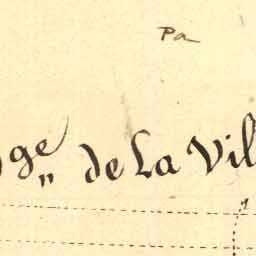 Pa
ge de La Vil
1